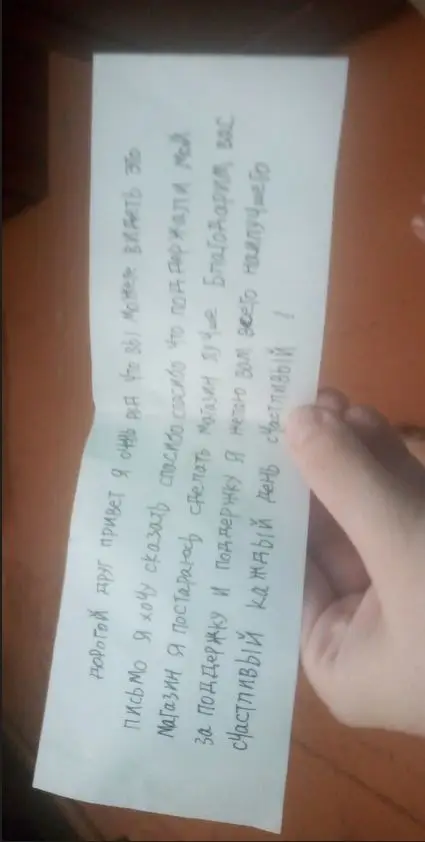 дорогой друг привет я очнь рад что вы можете видеть это
письмо я хочу сказать спасибо спсибо что поддержали мой
магазин я постараюсь сделать магазин лучше Благодарим вас
за поддержку и поддержку я желаю вам всего наилучшего
счастливый каждый день счастливый !